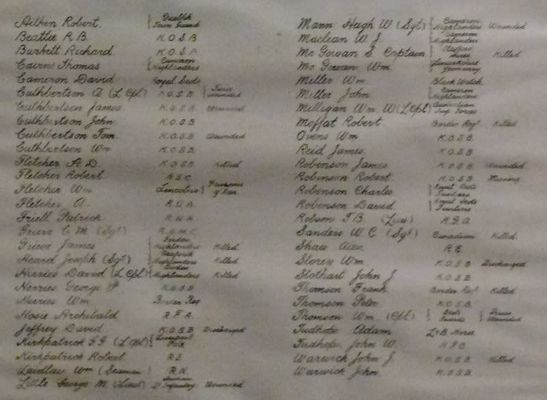 Aitken Robert.
Beattie R.B. K.O.S.B
Burkett Richard K.O.S.B.
Cairns Thomas Cameron Highlanders
Cameron David Royal Scots
Cuthbertson A (L Cpl) K.O.S.B Twice Wounded
Cuthbertson James K.O.S.B Wounded
Cuthbertson John K.O.S.B.
Cuthbertson Tom K.O.S.B. Wounded
Cuthbertson Wm K.O.S.B
Fletcher A. D. K.O.S.B Killed
Fletcher Robert A.S.C.
Fletcher Wm Prisoner of War
Fletcher A. R.G.A.
Friell Patrick
Grierson C. M. (Sgt) R.A.M.C
Grieve James Gordon Highlanders Killed
Heard Joseph (Sgt) Seaforth Highlanders Killed
Herries David (L Cpl) Gordon Highlanders Killed
Herries George P. K.O.S.B
Herries Wm Border Reg
Hosie Archibald R.F.A.
Jeffrey David K.O.S.B Discharged
Kirkpatrick (L Cpl) Liverpool
Kirkpatrick Robert R.E.
Laidlaw Wm (Seaman) R.N.
Little George M (Lieut) Infantry Wounded
Mann Hugh W (Sgt) Cameron Highlanders Wounded
Maclean W J. Cameron Highlanders
Mc Gowan Captain Killed
Mc Gowan Wm
Miller Wm Black Watch
Miller John Cameron Highlanders
Milligan Wm W (L Cpl)
Moffat Robert Border Regt Killed
Owens Wm K.O.S.B.
Reid James K.O.S.B.
Robinson James K.O.S.B Wounded
Robinson Robert K.O.S.B Missing
Robinson Charles Royal Scots Fusiliers
Robinson David Royal Scots Fusiliers
Robson T.B. (Lieu) R.F.A.
Sanders W C (Sgt) Canadian Killed
Shaw Alex R E
Storer Wm K.O.S.B Discharged
Stothart John J. K.O.S.B
Thomson Frank Border Regt Killed
Thomson Peter K.O.S.B.
Thomson Wm (Cpl) Scots Guards Twice Wounded
Tudhope Adam
Tudhope John W.
Warwick John J. K.O.S.B Killed
Warwick John K.O.S.B.